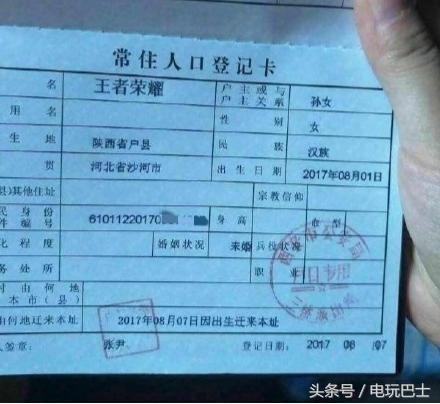 常住人口登记卡
名 王者荣耀 户主或与户主关系 孙女
用名 性别 女
生地 陕西省户县 民族 汉族
贯 河北省沙河市 出生日期 2017年08月01日
县)其他住址 宗教信仰
民身份件编号 61011220170 身高 血型
化程度 婚姻状况 未婚 兵役状况
务处所 职业
时由何地本市(县)
何地迁来本址 2017年08月07日因出生迁来本址
人签章: 张尹 登记日期: 2017 08 07
头条号/电玩巴士